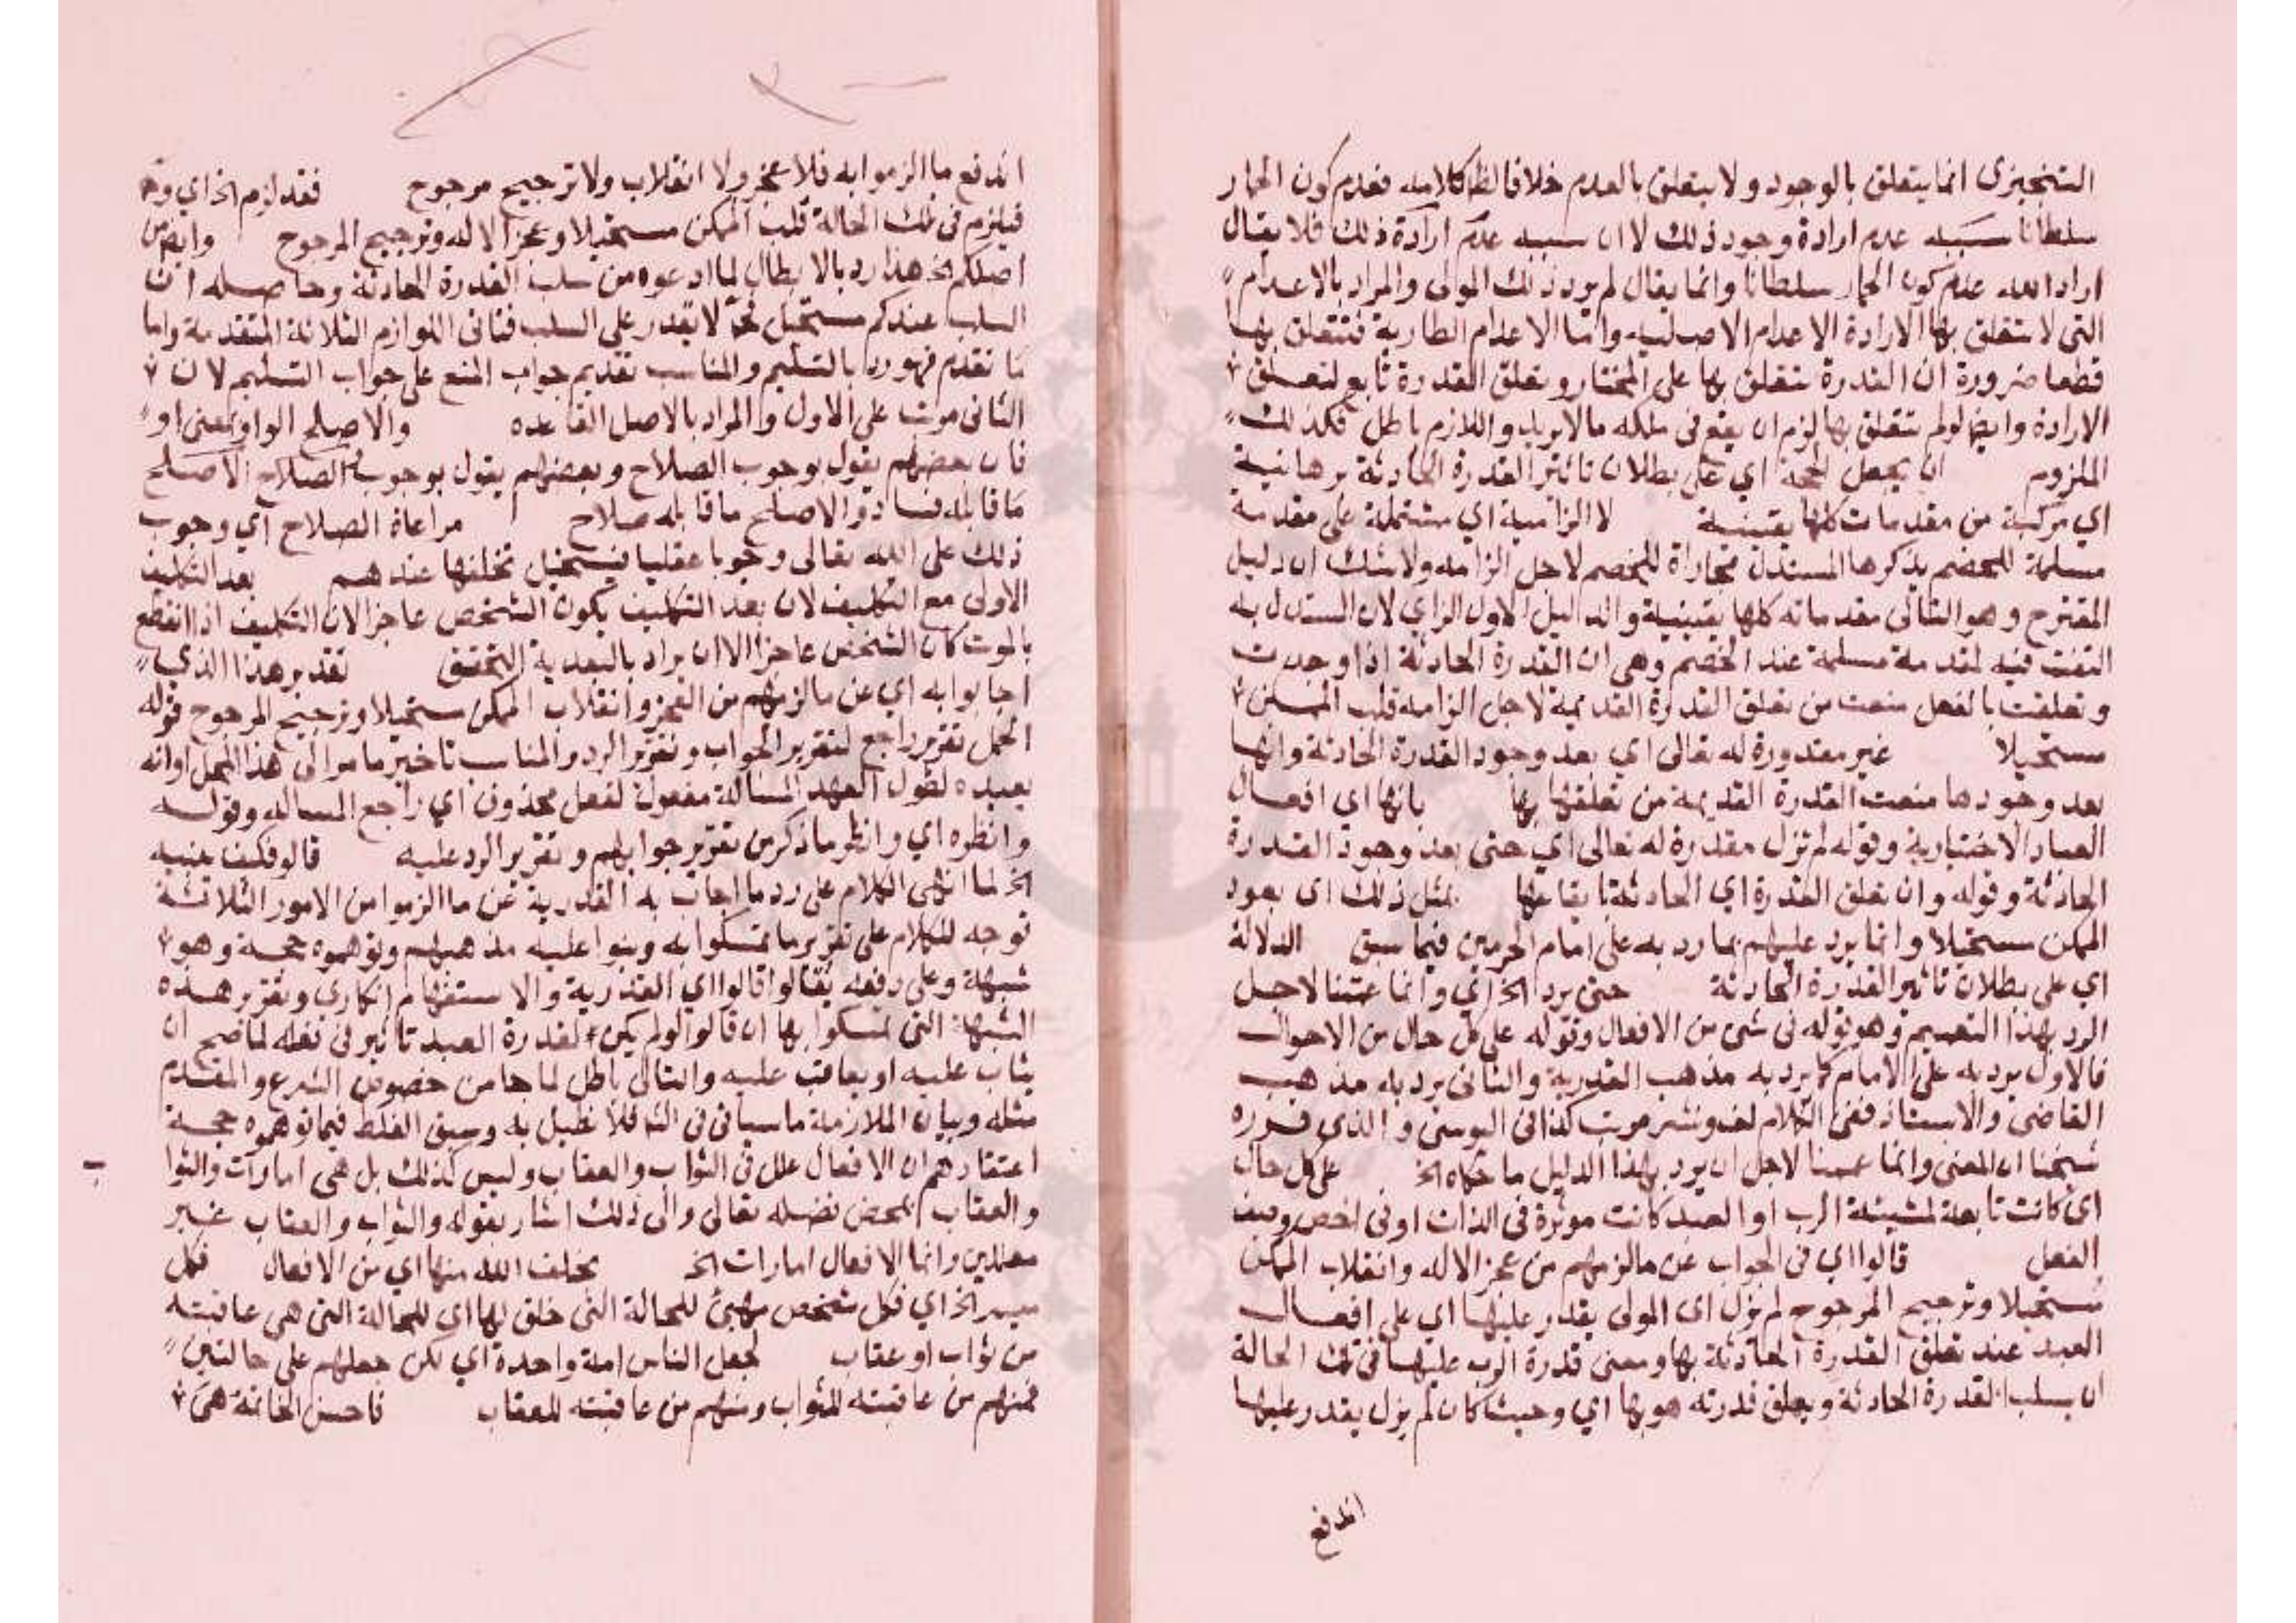 التنجيزى انما يتعلق بالوجود ولا يتعلق بالعدم خلافا لظ كلامه فعدم كون الحمار
سلطانا سببه عدم ارادة وجود ذلك لا ان سببه عدم ارادة ذلك فلا يقال
اراد الله عدم كون الحمار سلطانا وانما يقال لم يرد ذلك المولى والمراد بالاعدام
التى لا تتعلق بها الارادة الاعدام الاصلية واما الاعدام الطارية فتتعلق بها
قطعا ضرورة ان القدرة تتعلق بها على المختار وتعلق القدرة تابع لتعلق
الارادة وايضا لو لم تتعلق بها لزم ان يقع فى ملكه ما لا يريد واللازم باطل فكذلك
الملزوم ان يجعل الحجة اي على بطلان تاثير القدرة الحادثة برهانية
اي مركبة من مقدمات كلها يقينية لا الزامية اي مشتملة على مقدمة
مسلمة للخصم يذكرها المستدل مجاراة للخصم لاجل الزامه ولا شك ان دليل
المقترح وهو الثانى مقدماته كلها يقينية والدليل الاول الزاي لان المستدل به
التفت فيه لمقدمة مسلمة عند الخصم وهى ان القدرة الحادثة اذا وجدت
وتعلقت بالفعل منعت من تعلق القدرة القديمة لاجل الزامه قلب الممكن
مستحيلا غير مقدورة له تعالى اي بعد وجود القدرة الحادثة وانها
بعد وجودها منعت القدرة القديمة من تعلقها بها بانها اي افعال
العباد الاختيارية وقوله لم تزل مقدرة له تعالى اي حتى بعد وجود القدرة
الحادثة وقوله وان تعلق القدرة اي الحادثة بمثل ذلك اى بعود
الممكن مستحيلا وانما يرد عليهم بما رد به على امام الحرمين فيما سبق الدلالة
اي على بطلان تاثير القدرة الحادثة حتى يرد الخ اي وانما عممنا لاجل
الرد بهذا التعميم وهو قوله فى شئ من الافعال وقوله على كل حال من الاحوال
فالاول يرد به على الامام كما يرد به مذهب القدرية والثانى يرد به مذهب
القاضى والاستاذ ففى الكلام لف ونشر مرتب كذا فى اليوسى والذي قرره
شيخنا ان المعنى وانما عممنا لاجل ان يرد بهذا الدليل ما حكاه الخ على كل حال
اى كانت تابعة لمشيئة الرب او العبد كانت موثرة فى الذات او فى اخص وصف
الفعل قالوا اي فى الجواب عن ما لزمهم من عجز الاله وانقلاب الممكن
مستحيلا وترجيح المرجوح لم يزل اى المولى يقدر عليها اي على افعال
العبد عند تعلق القدرة الحادثة بها ومعنى قدرة الرب عليها فى تلك الحالة
ان يسلب القدرة الحادثة ويعلق قدرته هو بها اي وحيث كان لم يزل يقدر عليها
اندفع
اندفع ما الزموا به فلا عجز ولا انقلاب ولا ترجيح مرجوح فقد لزم الخ اي
فيلزم فى تلك الحالة قلب الممكن مستحيلا وعجز الاله وترجيح المرجوح وايضا من
اصلكم الخ هذا رد بالابطال لما ادعوه من سلب القدرة الحادثة وحاصله ان
السلب عندكم مستحيل لا يقدر على السلب فتاتى اللوازم الثلاثة المتقدمة واما
ما تقدم فهو رد بالتسليم والمناسب تقديم جواب المنع على جواب التسليم لان
الثانى مرتب على الاول والمراد بالاصل القاعدة والاصلح الواو بمعنى او
فان بعضهم يقول بوجوب الصلاح وبعضهم يقول بوجوب الاصلح
ما قابله فساد والاصلح ما قابله صلاح مراعاة الصلاح اي وجوب
ذلك على الله تعالى وجوبا عقليا فيستحيل تخلفها عندهم بعد التكليف
الاولى مع التكليف لان بعد التكليف يكون الشخص عاجزا لان التكليف اذا انقطع
بالموت كان الشخص عاجزا الا ان يراد بالبعدية التحقق تقدير هذا الذي
اجابوا به اي عن ما لزمهم من العجز وانقلاب الممكن مستحيلا وترجيح المرجوح قوله
الجمل تقرير راجع لتقرير الجواب وتقرير الرد والمناسب تاخير ما مر الى هذا المحل او انه
يعيده لطول العهد المسالة مفعول لفعل محذوف اي راجع المساله وقوله
وانظره اي وانظر ما ذكر من تقرير جوابهم وتقرير الرد عليه قالو فكيف يثيبه
الخ لما انهى الكلام على رد ما اجاب به القدرية عن ما الزموا من الامور الثلاثة
توجه للكلام على تقرير ما تمسكوا به وبنوا عليه مذهبهم وتوهموه حجة وهو
شبهة وعلى دفعه فقالوا قالوا اي القدرية والاستفهام انكارى وتقرير هذه
الشبهة التى تمسكوا بها ان قالوا لو لم يكن لقدرة العبد تاثير فى فعله لما صح ان
يثاب عليه او يعاقب عليه والتالى باطل لما جا من نصوص الشرع والمقدم
مثله وبيان الملازمة ما سياتى فى الش فلا نطيل به وسبق الغلط فيما توهموه حجة
اعتقادهم ان الافعال علل فى الثواب والعقاب وليس كذلك بل هى امارات والثوا
والعقاب بمحض فضله تعالى والى ذلك اشار بقوله والثواب والعقاب غير
معللين وانما الافعال امارات الخ يخلق الله منها اي من الافعال فكل
ميسر الخ اي فكل شخص مهيئ للحالة التى خلق لها اى للحالة التى هى عاقبته
من ثواب او عقاب لجعل الناس امة واحدة اي لكن جعلهم على حالتين
فمنهم من عاقبته للثواب ومنهم من عاقبته للعقاب فاحسن الخاتمة هى